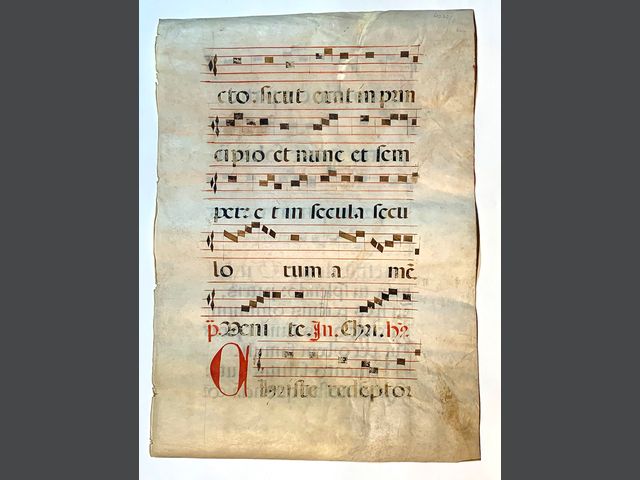 cto. sicut erat in prin
cipio et nunc et sem
per: e t in secula secu
lo rum a mē
Veni te. In. Chri.
Christe redeptor